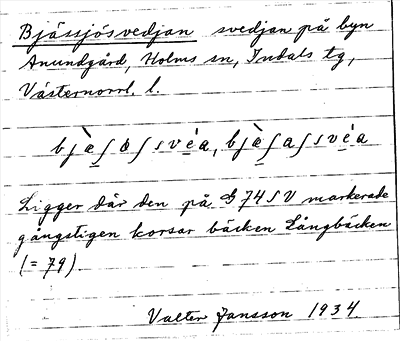 Bjässjösvedjan svedjan på byn
Anundgård, Holms sn, Indals tg,
Västernorrl. l.
Ligger där den på G 74 SV markerade
gångstigen korsar bäcken Långbäcken
(= 79).
Valter Jansson 1934